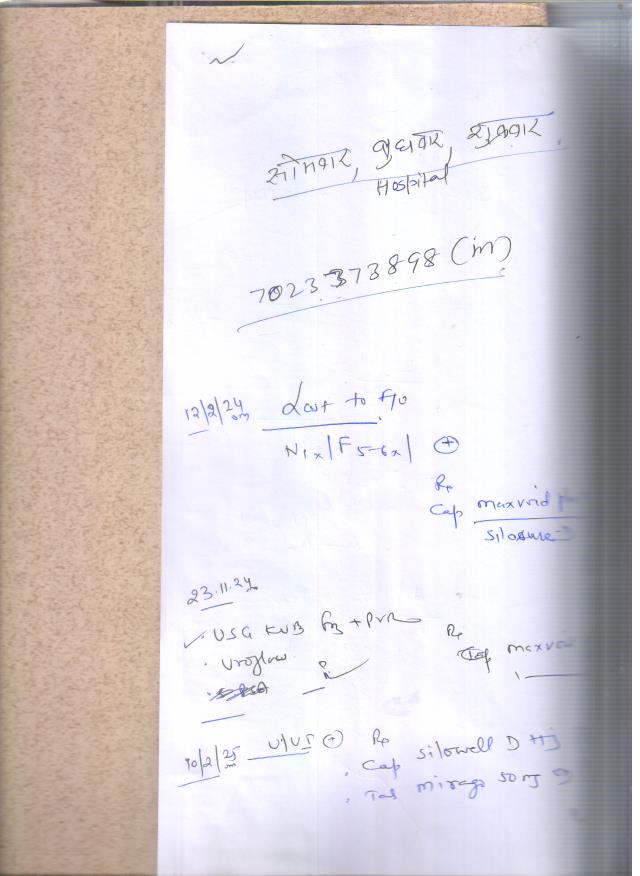 सोमवार, बुधवार, शुक्रवार
Hospital
7023373898 (m)
12/2/24 Lost to F/o
N1x|F5-6x| +
Rx
Cap maxvoid
silosure
23.11.24
USG KUB + PVR
Rx
maxvo
Uroflow
10/2/25 U/US + Rx
Cap silowell D
Tab mirago 50 mg